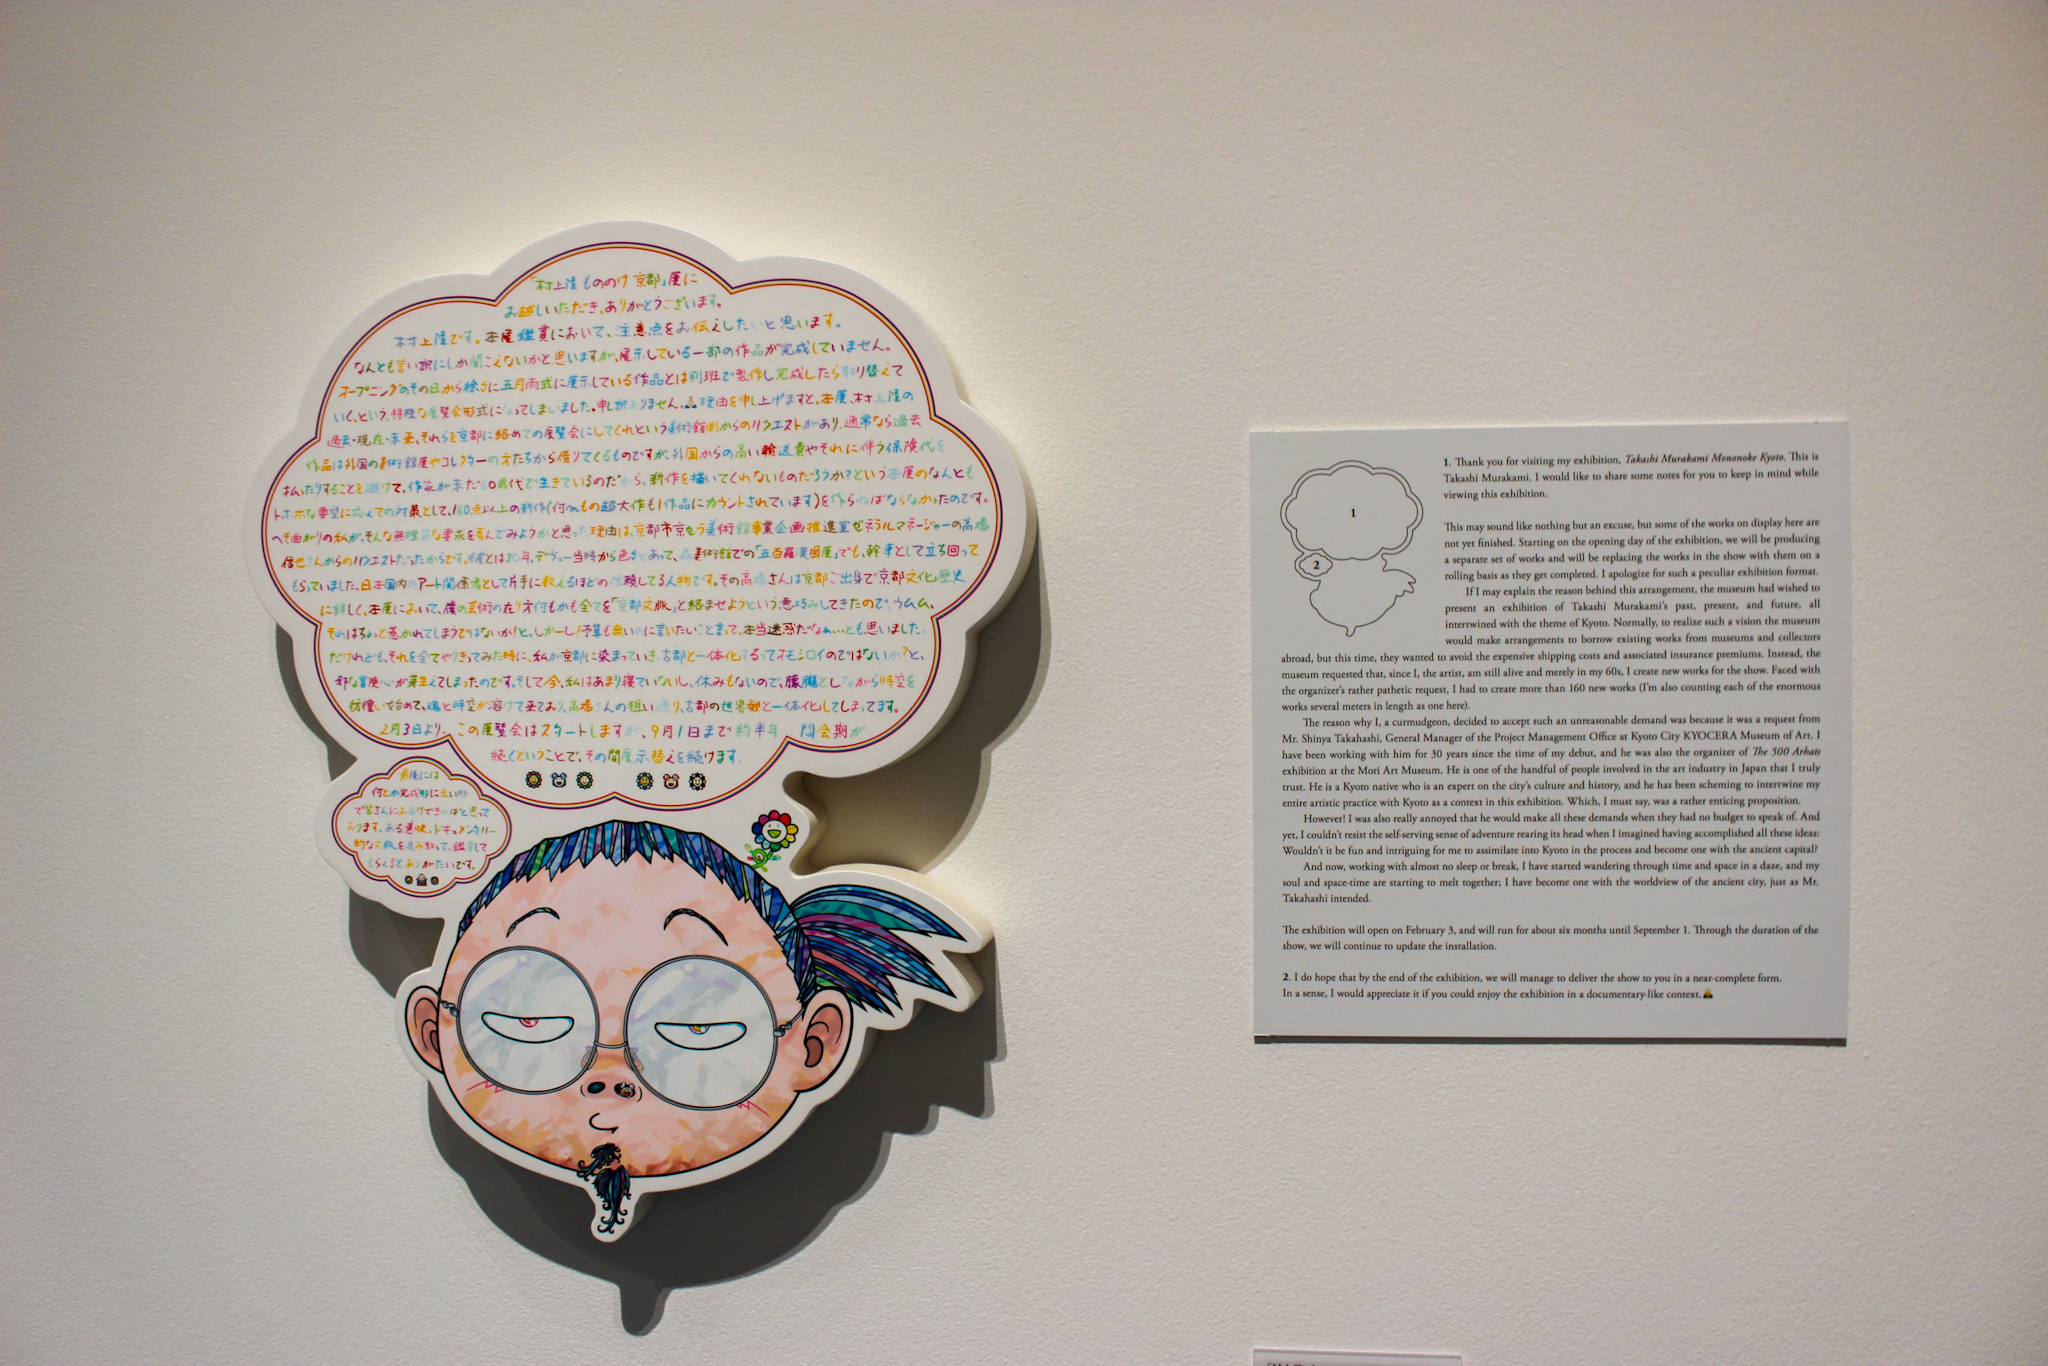 「村上隆 もののけ 京都」展に
お越しいただき、ありがとうございます。
村上隆です。本展鑑賞において、注意点をお伝えしたいと思います。
なんとも言い訳にしか聞こえないかと思いますが、展示している一部の作品が完成していません。
オープニングのその日から徐々に五月雨式に展示している作品とは別班で製作し完成したら取り替えて
いく、という、特殊な展覧会形式になってしまいました。申し訳ありません。🙏理由を申し上げますと、本展、村上隆の
過去・現在・未来、それらを京都に絡めての展覧会にしてくれという美術館側からのリクエストがあり、通常なら過去
作品は外国の美術館展やコレクターの方たちから借りてくるものですが、外国からの高い輸送費やそれに伴う保険代を
払ったりすることを避けて、作家が未だ60歳代で生きているのだから、新作を描いてくれないものだろうか?という本展のなんとも
トホホな要望に応えての対策として、160点以上の新作(何mもの超大作も1作品にカウントされています)を作らねばならなかったのです。
へそ曲がりの私が、そんな無理筋な要求を呑んでみようかと思った理由は、京都市京セラ美術館事業企画推進室ゼネラルマネージャーの高橋
信也さんからのリクエストだったからです。彼とは30年、デヴュー当時から色々とあって、森美術館での「五百羅漢図展」でも、幹事として立ち回って
もらっていました。日本国内のアート関係者として片手に数えるほどの信頼してる人物です。その高橋さんは京都ご出身で京都文化、歴史
に詳しく、本展において、僕の芸術の在り方何もかも全てを「京都文脈」と絡ませようという悪巧みしてきたので、ウムム、
それはちょっと惹かれてしまうではないか!と。しかーし!予算も無いのに言いたいこと言って、本当迷惑だなぁ…とも思いました。
だけれども、それを全てやりきってみた時に、私が京都に染まっていき、古都と一体化するってオモシロイのではないか?と、
邪な冒険心が芽生えてしまったのです。そして今、私はあまり寝ていないし、休みもないので、朦朧としながら時空を
彷徨い始めて、魂と時空が溶けて来ており、高橋さんの狙い通り、古都の世界観と一体化してしまってます。
2月3日より、この展覧会はスタートしますが、9月1日まで約半年間会期が
続くということで、その間展示替えを続けます。
最後には
何とか完成形に近い形
で皆さんにお届けできればと思って
おります。ある意味、ドキュメンタリー
的な文脈を汲み取って、鑑賞して
もらえるとありがたいです。
1
2
1. Thank you for visiting my exhibition, Takashi Murakami Mononoke Kyoto. This is
Takashi Murakami. I would like to share some notes for you to keep in mind while
viewing this exhibition.
This may sound like nothing but an excuse, but some of the works on display here are
not yet finished. Starting on the opening day of the exhibition, we will be producing
a separate set of works and will be replacing the works in the show with them on a
rolling basis as they get completed. I apologize for such a peculiar exhibition format.
If I may explain the reason behind this arrangement, the museum had wished to
present an exhibition of Takashi Murakami's past, present, and future, all
intertwined with the theme of Kyoto. Normally, to realize such a vision the museum
would make arrangements to borrow existing works from museums and collectors
abroad, but this time, they wanted to avoid the expensive shipping costs and associated insurance premiums. Instead, the
museum requested that, since I, the artist, am still alive and merely in my 60s, I create new works for the show. Faced with
the organizer's rather pathetic request, I had to create more than 160 new works (I'm also counting each of the enormous
works several meters in length as one here).
The reason why I, a curmudgeon, decided to accept such an unreasonable demand was because it was a request from
Mr. Shinya Takahashi, General Manager of the Project Management Office at Kyoto City KYOCERA Museum of Art. I
have been working with him for 30 years since the time of my debut, and he was also the organizer of The 500 Arhats
exhibition at the Mori Art Museum. He is one of the handful of people involved in the art industry in Japan that I truly
trust. He is a Kyoto native who is an expert on the city's culture and history, and he has been scheming to intertwine my
entire artistic practice with Kyoto as a context in this exhibition. Which, I must say, was a rather enticing proposition.
However! I was also really annoyed that he would make all these demands when they had no budget to speak of. And
yet, I couldn't resist the self-serving sense of adventure rearing its head when I imagined having accomplished all these ideas:
Wouldn't it be fun and intriguing for me to assimilate into Kyoto in the process and become one with the ancient capital?
And now, working with almost no sleep or break, I have started wandering through time and space in a daze, and my
soul and space-time are starting to melt together; I have become one with the worldview of the ancient city, just as Mr.
Takahashi intended.
The exhibition will open on February 3, and will run for about six months until September 1. Through the duration of the
show, we will continue to update the installation.
2. I do hope that by the end of the exhibition, we will manage to deliver the show to you in a near-complete form.
In a sense, I would appreciate it if you could enjoy the exhibition in a documentary-like context.🙏